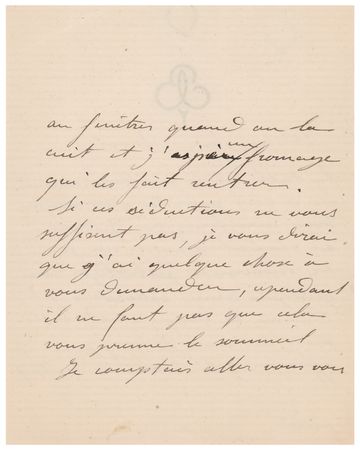 au fenêtres quand on la
cuit et j'ai un fromage
qui les fait rentrer.
Si ces séductions ne vous
suffisent pas, je vous dirai
que j'ai quelque chose à
vous demander, cependant
il ne faut pas que cela
vous prenne le sommeil
Je comptais aller vous voir